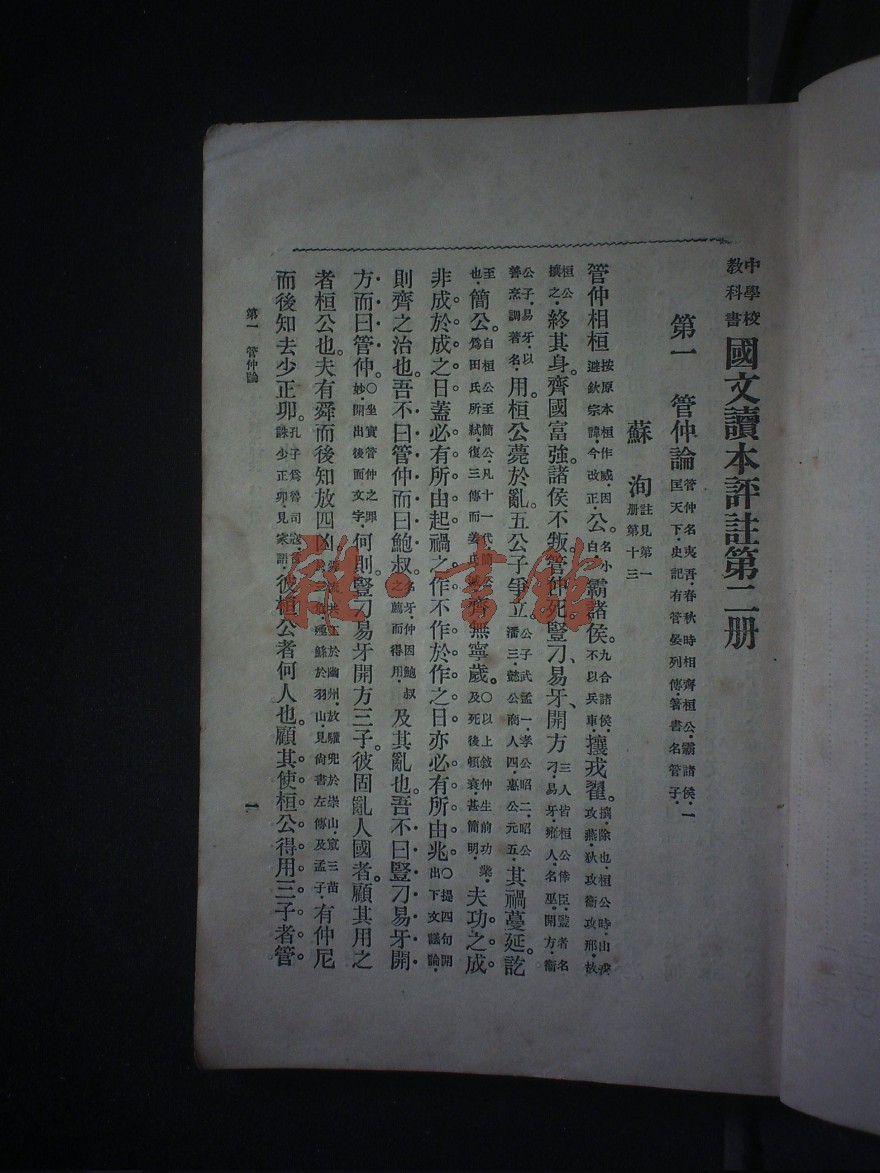 中學校教科書 國文讀本評註第二册
第一　管仲論 管仲名夷吾・春秋時相齊桓公・霸諸侯・一匡天下・史記有管晏列傳・著書名管子・
蘇洵 註見第一册第十三
管仲相桓 按原本桓作威・因避欽宗諱・今改正・ 公。 名小白・ 霸諸侯。 九合諸侯・不以兵車・ 攘戎翟。 攘・除也・桓公時・山戎攻燕・狄攻衞攻邢・故
桓公攘之・ 終其身。齊國富強。諸侯不叛。管仲死。豎刁、易牙、開方 三人皆桓公倖臣・豎者名刁・易牙・雍人・名巫・開方・衞
公子・易牙・以善烹調著名・ 用。桓公薨於亂。五公子爭立。 公子武孟一・孝公昭二・昭公潘三・懿公商人四・惠公元五・ 其禍蔓延。訖
至也・ 簡公。 自桓公至簡公・凡十一代・簡公爲田氏所弒・復三傳而姜氏 齊無寧歲。 ○以上敍仲生前功業・及死後頓衰・甚簡明・ 夫功之成。
非成於成之日。蓋必有所由起。禍之作。不作於作之日。亦必有所由兆。 ○提四句開出下文議論・
則齊之治也。吾不曰管仲。而曰鮑叔。 名牙・仲因鮑叔之薦而得用・ 及其亂也。吾不曰豎刁易牙開
方。而曰管仲。 ○坐實管仲之罪妙・開出後面文字・ 何則。豎刁易牙開方三子。彼固亂人國者。顧其用之
者桓公也。夫有舜而後知放四凶。 於幽州・放驩兜於崇山・竄三苗 殛鯀於羽山・見尙書左傳及孟子・ 有仲尼
而後知去少正卯。 孔子爲魯司寇 誅少正卯・見家語・ 彼桓公者何人也。顧其使桓公得用三子者。管
第一　管仲論
一
雜・書館